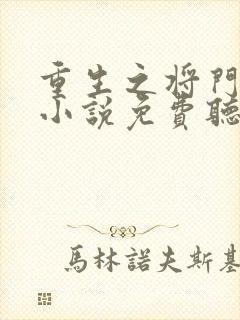 重生之将門
小說免費聽
馬林諾夫斯基